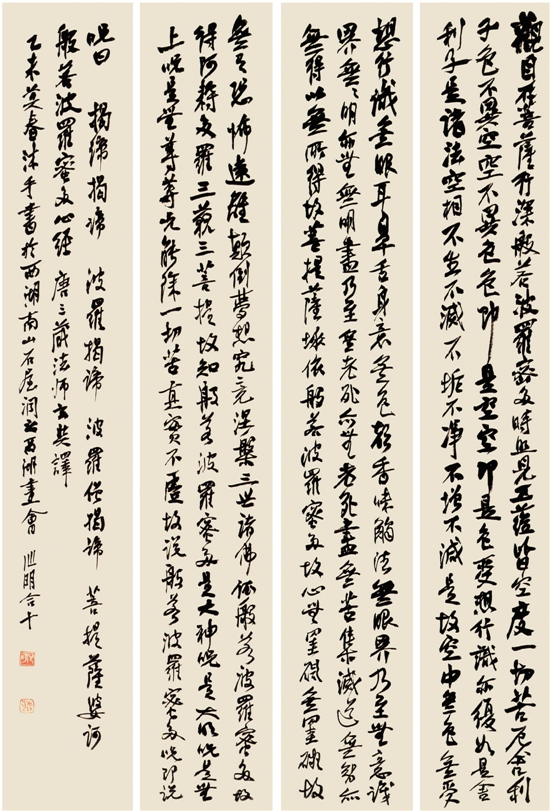 觀自在菩薩行深般若波羅蜜多時照見五蘊皆空度一切苦厄舍利
子色不異空空不異色色即是空空即是色受想行識亦復如是舍
利子是諸法空相不生不滅不垢不净不增不減是故空中無色無受
想行識無眼耳鼻舌身意無色聲香味觸法無眼界乃至無意識
界無々明亦無無明盡乃至無老死亦無老死盡無苦集滅道無智亦
無得以無所得故菩提薩埵依般若波羅蜜多故心無罣礙無罣礙故
無有恐怖遠離顛倒夢想究竟涅槃三世諸佛依般若波羅蜜多故
得阿耨多羅三藐三菩提故知般若波羅蜜多是大神咒是大明咒是無
上咒是無等等咒能除一切苦真實不虛故説般若波羅蜜多咒即説
咒曰 揭諦揭諦 波羅揭諦 波羅僧揭諦 菩提薩婆訶
般若波羅蜜多心經 唐三藏法師玄奘譯
乙未莫春沐手書於西湖南山石屋洞之西湖畫會 明合十